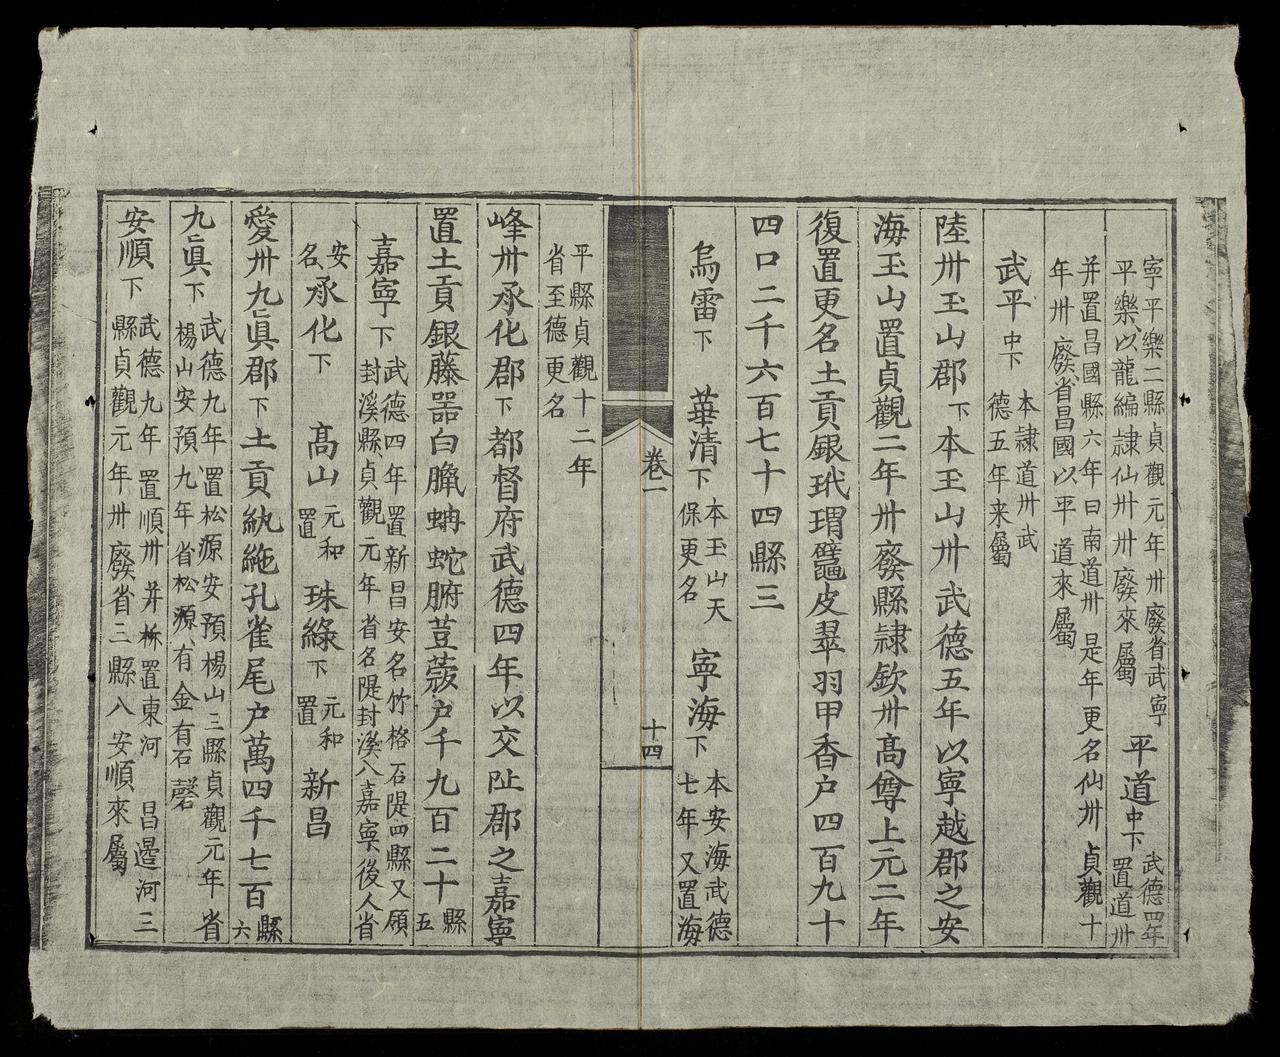 寧平樂二縣貞觀元年卅廢省武寧
平樂以龍編隷仙卅卅廢來屬
平道中下
武德四年
置道卅
并置昌國縣六年曰南道卅是年更名仙卅貞觀十
年卅廢省昌國以平道來屬
武平中下
本隷道卅武
德五年来屬
陸卅玉山郡下本玉山卅武德五年以寧越郡之安
海玉山置貞觀二年卅廢縣隷欽卅髙尊上元二年
復置更名土貢銀玳瑁鼊皮翠羽甲香户四百九十
四口二千六百七十四縣三
烏雷下
華清下
本玉山天
保更名
寧海下
本安海武德
七年又置海
卷一
十四
平縣貞觀十二年
省至德更名
峰卅承化郡下都督府武德四年以交阯郡之嘉寧
置土貢銀藤噐白鑞蚺蛇腑荳蔲户千九百二十
縣
五
嘉寧下
武德四年置新昌安名竹格石隄四縣又願
封溪縣貞觀元年省名隄封溪八嘉寧後人省
安
名
承化下
髙山
元和
置
珠綠下
元和
置
新昌
愛卅九眞郡下土貢紈絁孔雀尾户萬四千七百
縣
六
九眞下
武德九年置松源安預楊山三縣貞觀元年省
楊山安預九年省松源有金有石磬
安順下
武德九年置順卅并析置東河昌邊河三
縣貞觀元年卅廢省三縣八安順來屬